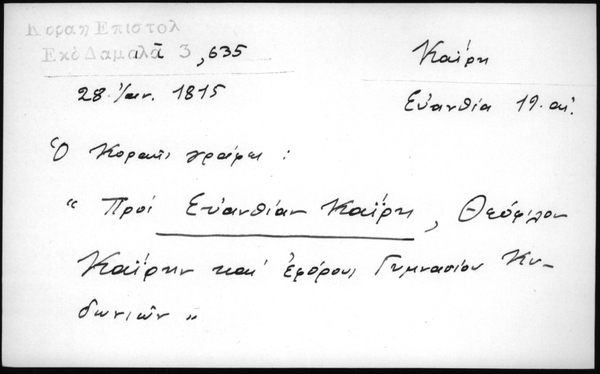 Κοραη Επιστολ
Εκδ Δαμαλα 3, 635
Καΐρη
28 Ἰαν. 1815
Εὐανθία 19. αἰ.
Ὁ Κοραῆς γράφει :
“ Πρός Εὐανθίαν Καΐρη, Θεόφιλον
Καΐρην καί ἐφόρους Γυμνασίου Κυ-
δωνιῶν „